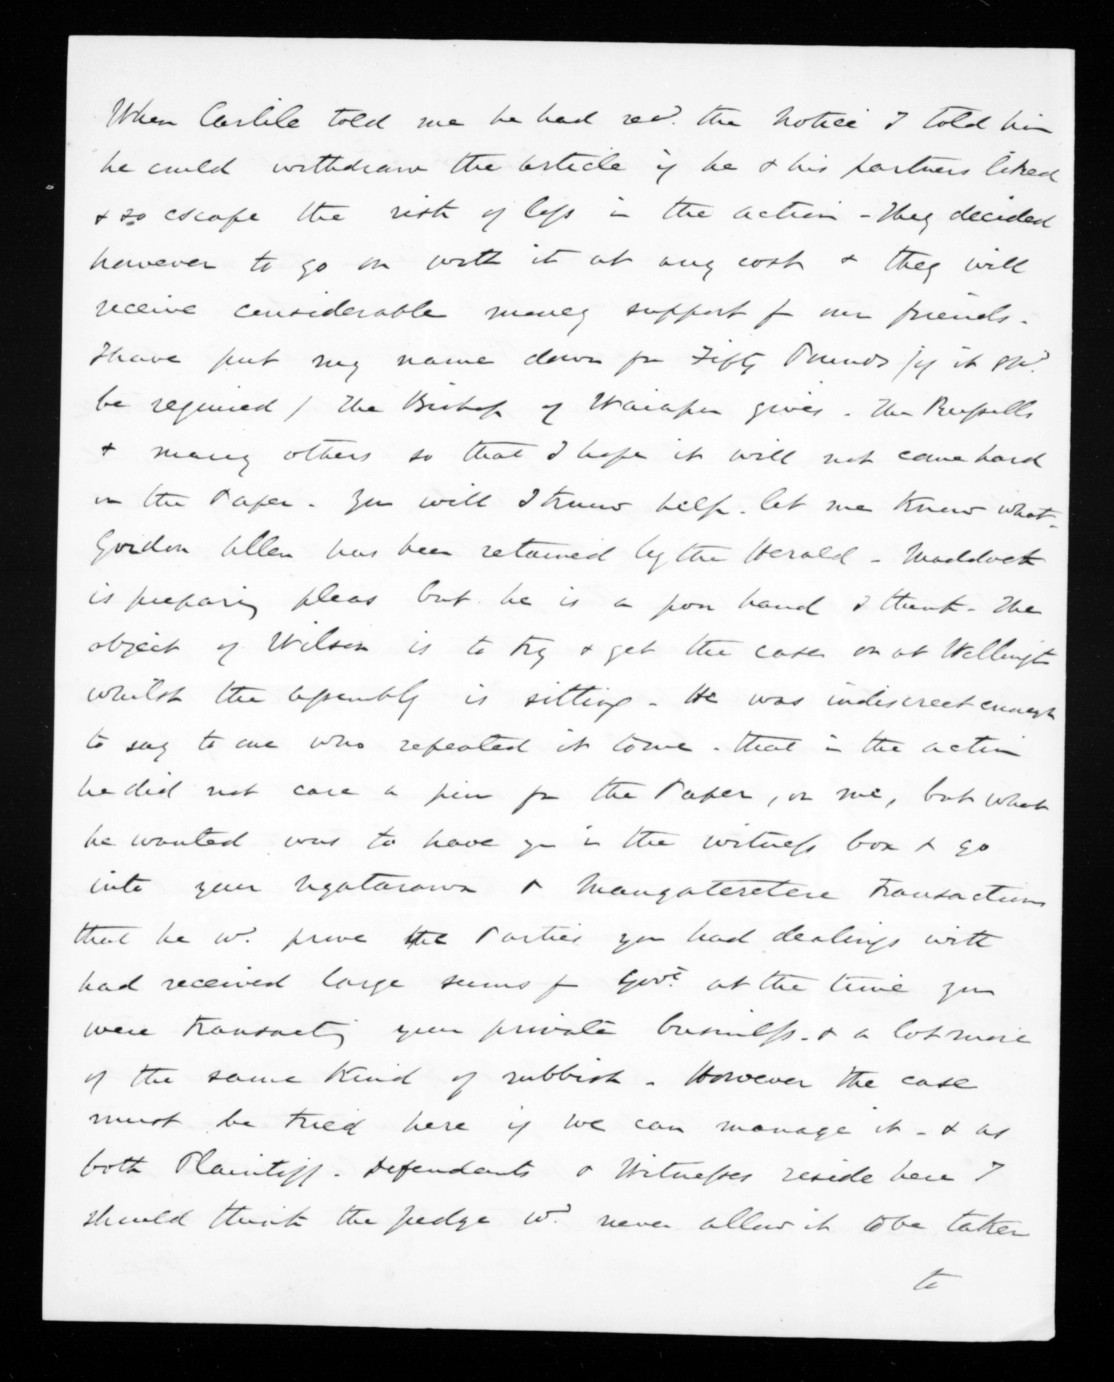 When Carlile told me he had recd. the Notice I told him
he could withdraw the article if he & his partners liked
& so escape the risk of loss in the action - They decided
however to go on with it at any cost & they will
receive considerable money support fm our friends.
I have put my name down for Fifty Pounds (if it shd.
be required) The Bishop of Waiapu gives. The Russells
& many others so that I hope it will not come hard
on the Paper. You will I know help. let me know what.
Gordon Allen has been retained by the Herald - Maddock
is preparing pleas but he is a poor hand I think. The
object of Wilson is to try & get the case on at Wellington
whilst the Assembly is sitting. He was indiscreet enough
to say to one who repeated it to me. that in the action
he did not care a pin for the Paper, or me, but what
he wanted was to have you in the witness box & go
into your Ngatarawa & Mangateretere transactions
that he wd. prove the Parties you had dealings with
had received large sums fm Govt. at the time you
were transacting your private business. & a lot more
of the same kind of rubbish. However the case
must be tried here if we can manage it - & as
both Plaintiff. Defendants & Witnesses reside here I
should think the Judge wd. never allow it to be taken
to